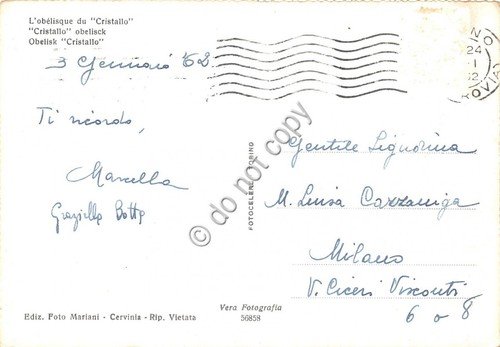 L'obélisque du "Cristallo"
"Cristallo" obelisck
Obelisk "Cristallo"
3 Gennaio 62
Ti ricordo,
Marcella
Graziella Botta
Gentile Signorina
M. Luisa Cazzaniga
Milano
V. Ciceri Visconti
6 o 8
FOTOCELERE TORINO
NO
24
1
62
ROVIA
do not copy
Ediz. Foto Mariani - Cervinia - Rip. Vietata
Vera Fotografia
56858